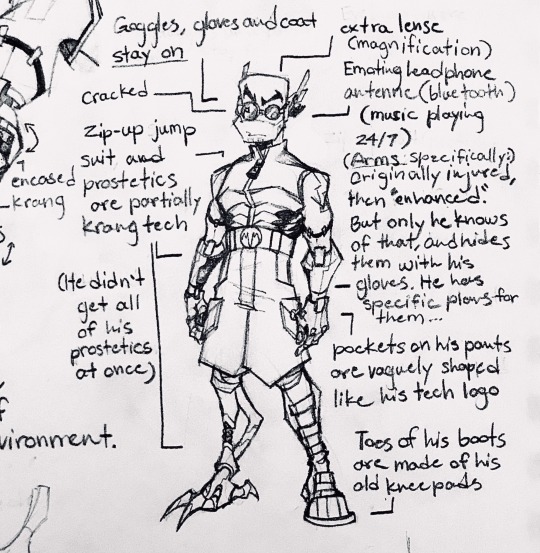 Goggles, gloves and coat
stay on
cracked
Zip-up jump
suit and
prostetics
are partially
krang tech
encased
krang
(He didn't
get all
of his
prostetics
at once)
vironment.
extra lense
(magnification)
Emoting headphone
antenne (bluetooth)
(music playing
24/7)
(Arms specifically:)
Originally injured,
then "enhanced".
But only he knows
of that, and hides
them with his
gloves. He has
specific plans for
them...
pockets on his pants
are vaguely shaped
like his tech logo
Toes of his boots
are made of his
old kneepads